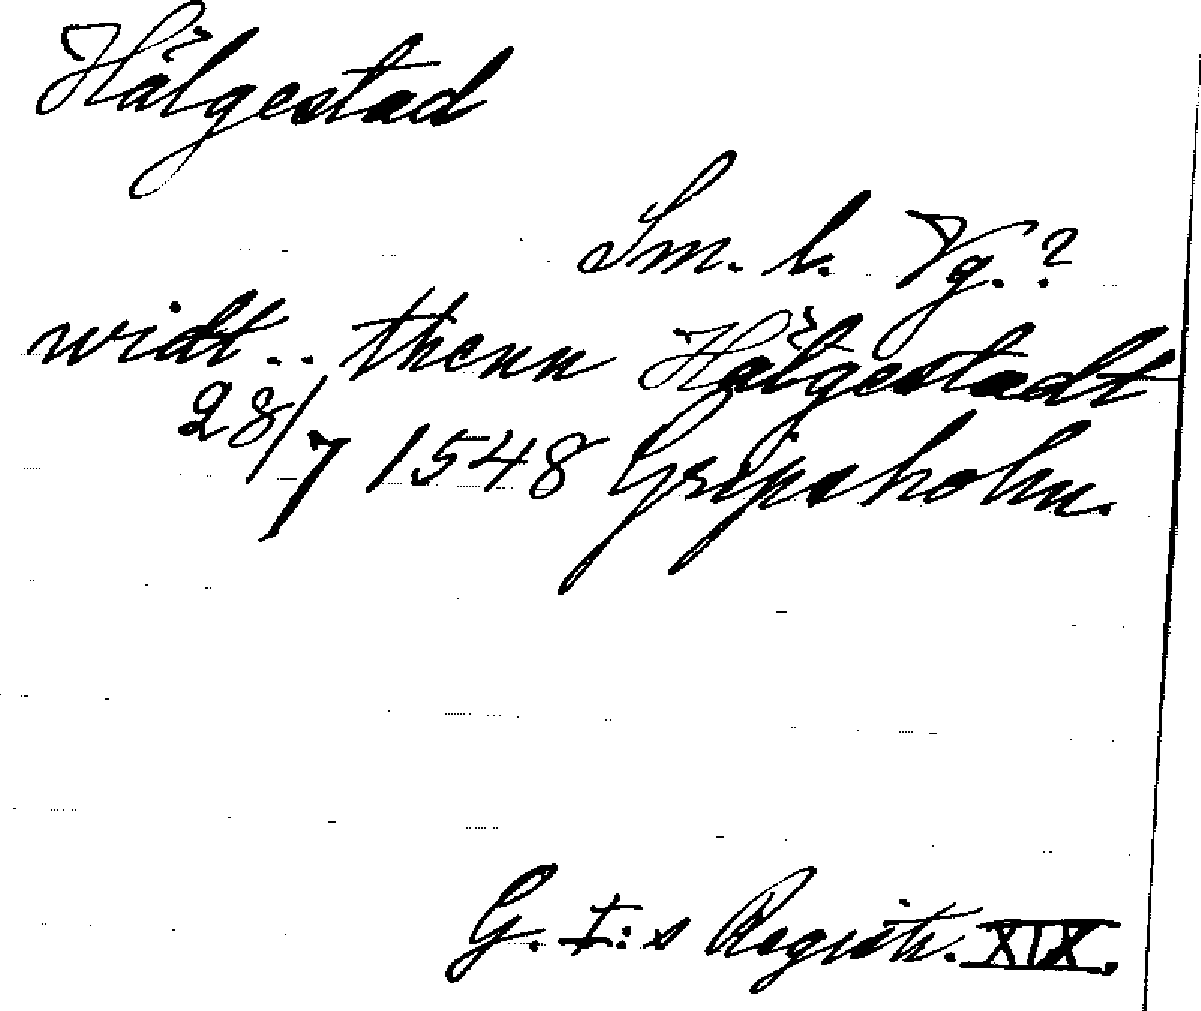 Hålgestad
Sm. l. Vg.?
widt.. thenn Hålgestadt
28/7 1548 Gripsholm.
G. I:s Registr. XIX,